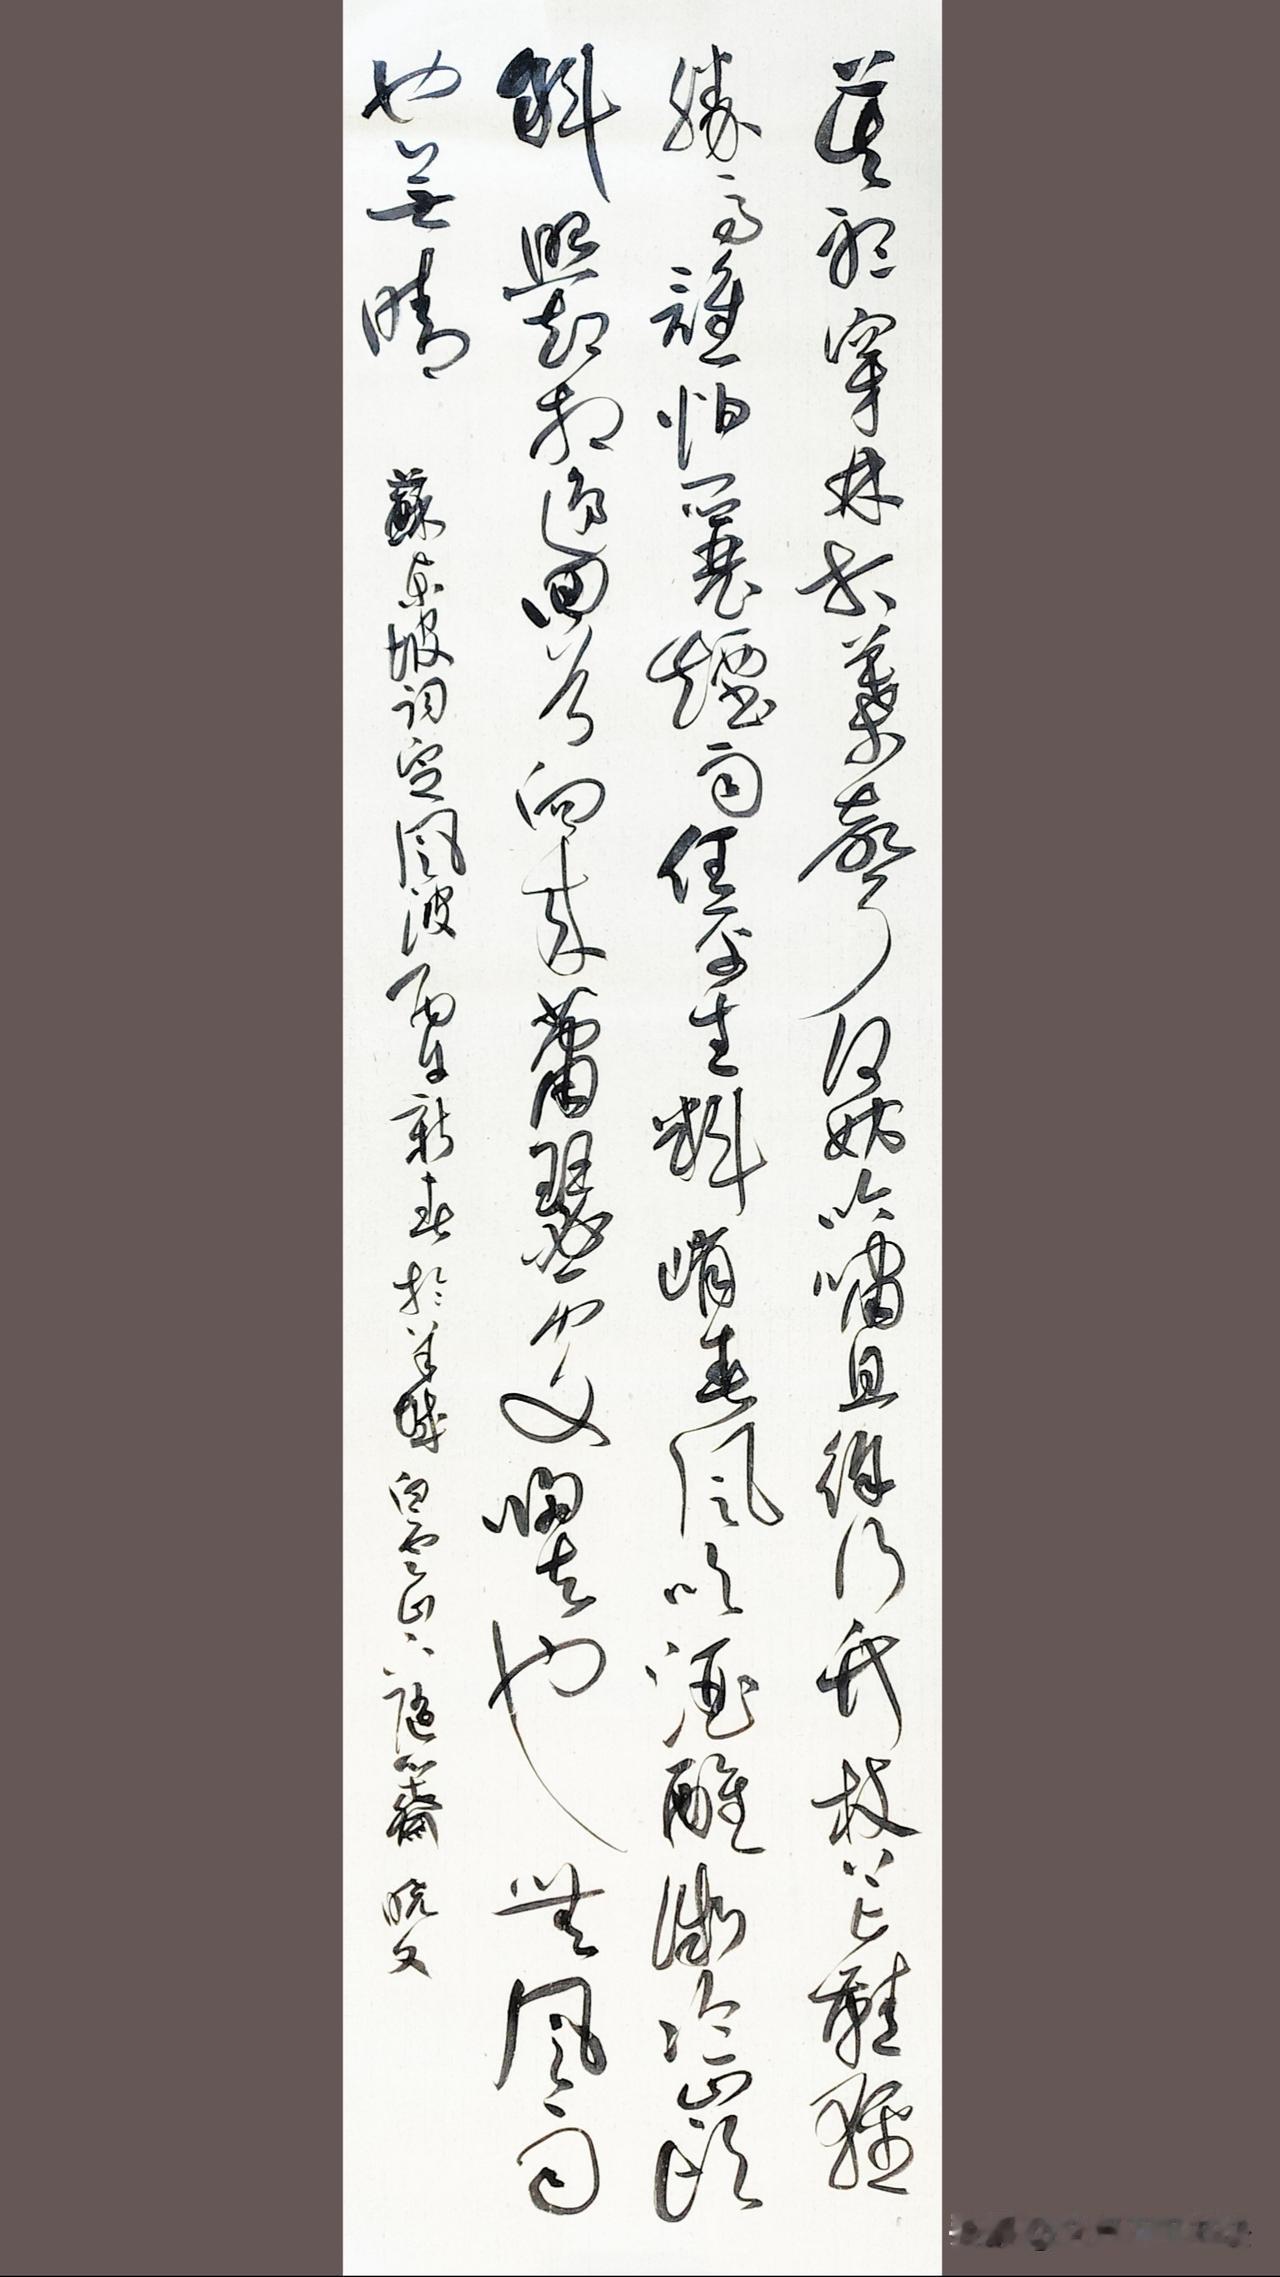 莫聽穿林打葉聲何妨吟嘯且徐行竹杖芒鞋輕
勝馬誰怕一蓑煙雨任平生料峭春風吹酒醒微冷山頭
斜照却相迎回首向來蕭瑟處歸去也無風雨
也無晴
蘇東坡詞定風波新春於羊城白雲山下隨齋曉文